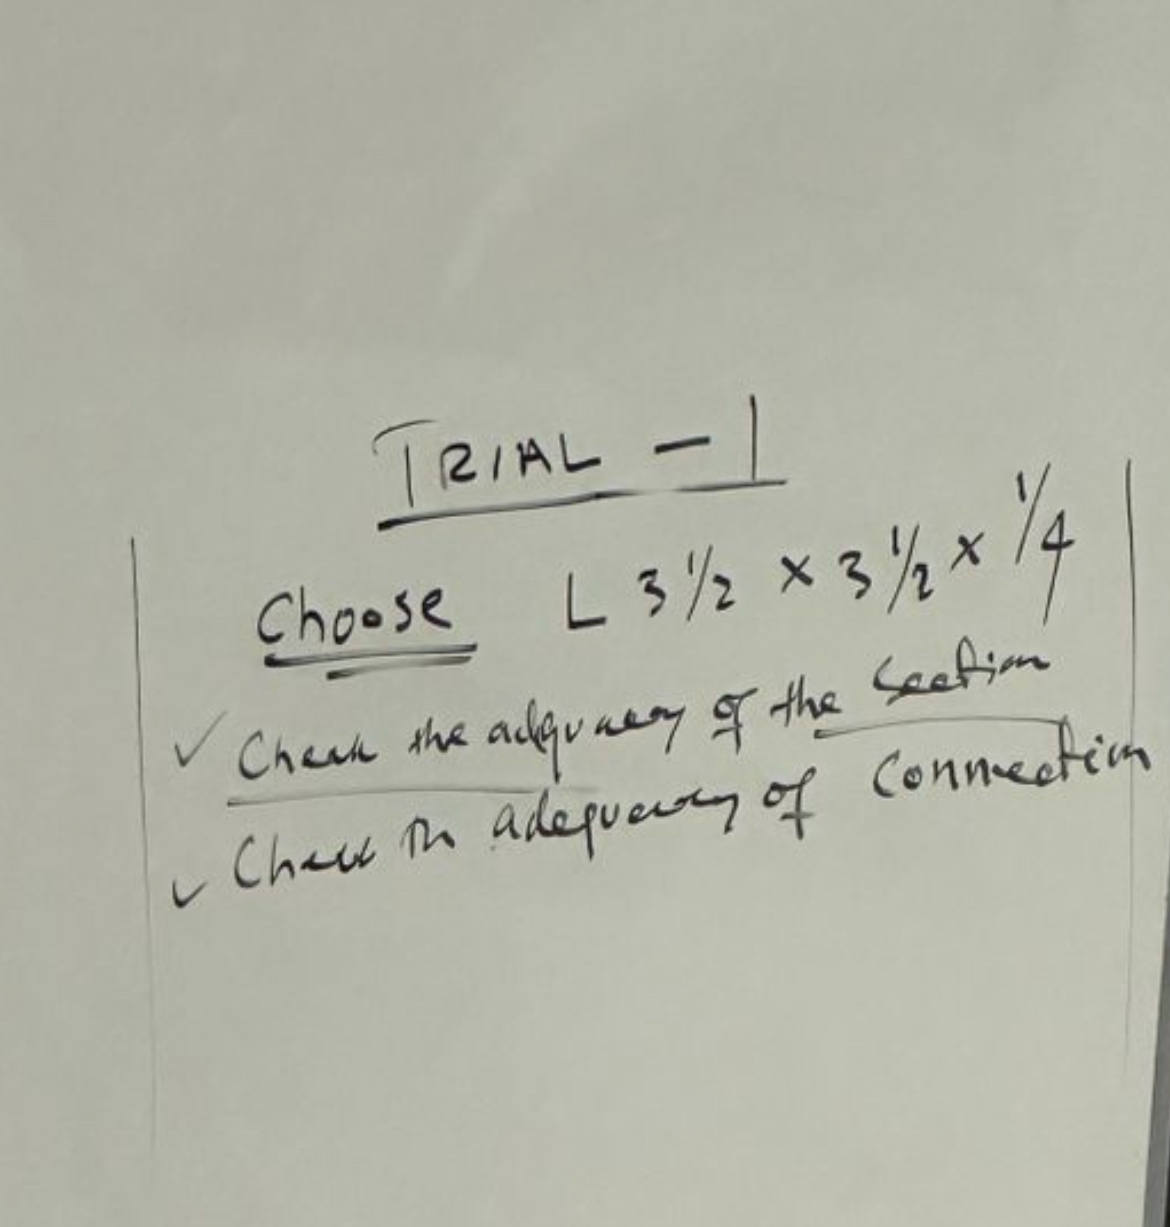 TRIAL - 1
Choose L 3 1/2 x 3 1/2 x 1/4
✓ Check the adequacy of the section
✓ Check the adequacy of Connection